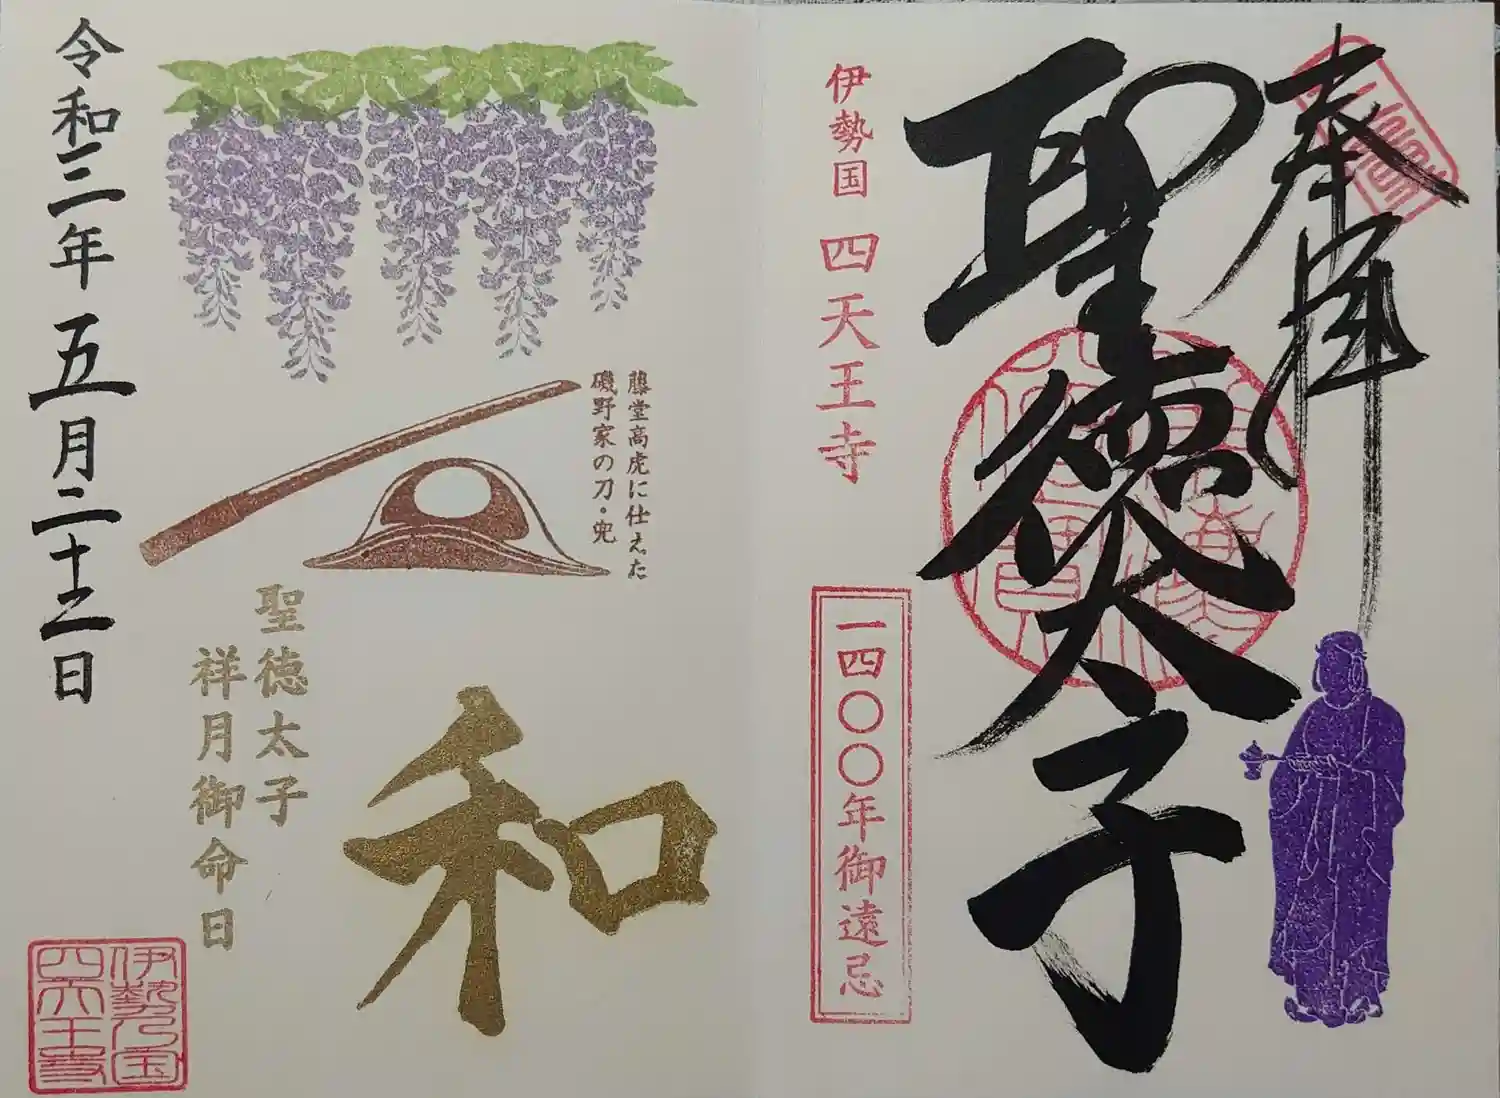 奉拝
聖徳太子
伊勢国 四天王寺
一四〇〇年御遠忌
藤堂高虎に仕えた
磯野家の刀・兜
和
聖徳太子
祥月御命日
令和三年 五月二十二日
伊勢乃国
四天王寺